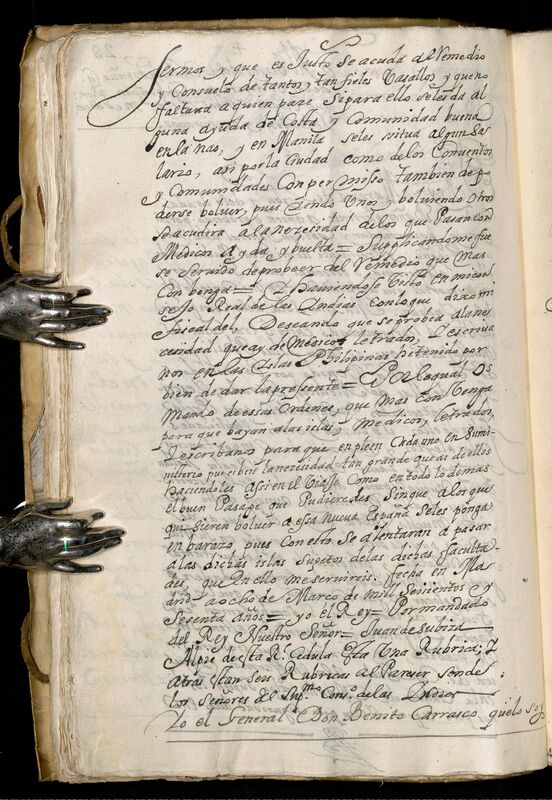 fermos y que es Justo se acuda al Remedio
y Consuelo de tantos y tan fieles Vasallos y que no
faltara a quien pase si para ello se les da al
guna ayuda de Costa y Comunidad buena
en la nao, y en Manila se les situa algun sa
lario, asi por la Ciudad como de los Conventos
y Comunidades Con permisso tambien de po
derse bolver, pues Yendo Unos y bolviendo Otros
se acudira a la necesidad de los que Pasan con
Medicos a yda y buelta = Suplicandome fue
se servido de probeer del Remedio que mas
Conbenga = Y haviendose Visto en mi con
sejo Real de las Indias con lo que dixo mi
fiscal del, Deseando que se probea a la ne
cesidad que ay de Medicos Letrados, y escriva
nos en las Islas Philipinas he tenido por
bien de dar la presente = Por la qual Os
Mando de essas Ordenes, que mas Convenga
para que bayan a las islas, Medicos, Letrados,
y escribanos para que enpleen Cada uno en su mi
nisterio pues beis la necesidad tan grande que ai de ellos
haciendoles assi en el Viaje Como en todo lo demas
el buen Pasaje que Pudieredes Sin que a los que
quisieren bolver a essa nueva España se les ponga
enbarazo, pues Con esto se alentaran a pasar
a las dichas islas Sugetos de las dichas faculta
des, que en ello me servireis. fecha en Mad
drid a ocho de Marco de mill Seicientos y
Sesenta años = yo el Rey = Por mandado
del Rey Nuestro Señor = Juan de subiza =
Al pie de esta Rl. Cedula Esta Una Rubrica; Y
atras estan seis Rubricas al Parecer, son de
los Señores del Supmo. Conso. de las Indias
Yo el General Don Benito Carrasco que lo soy